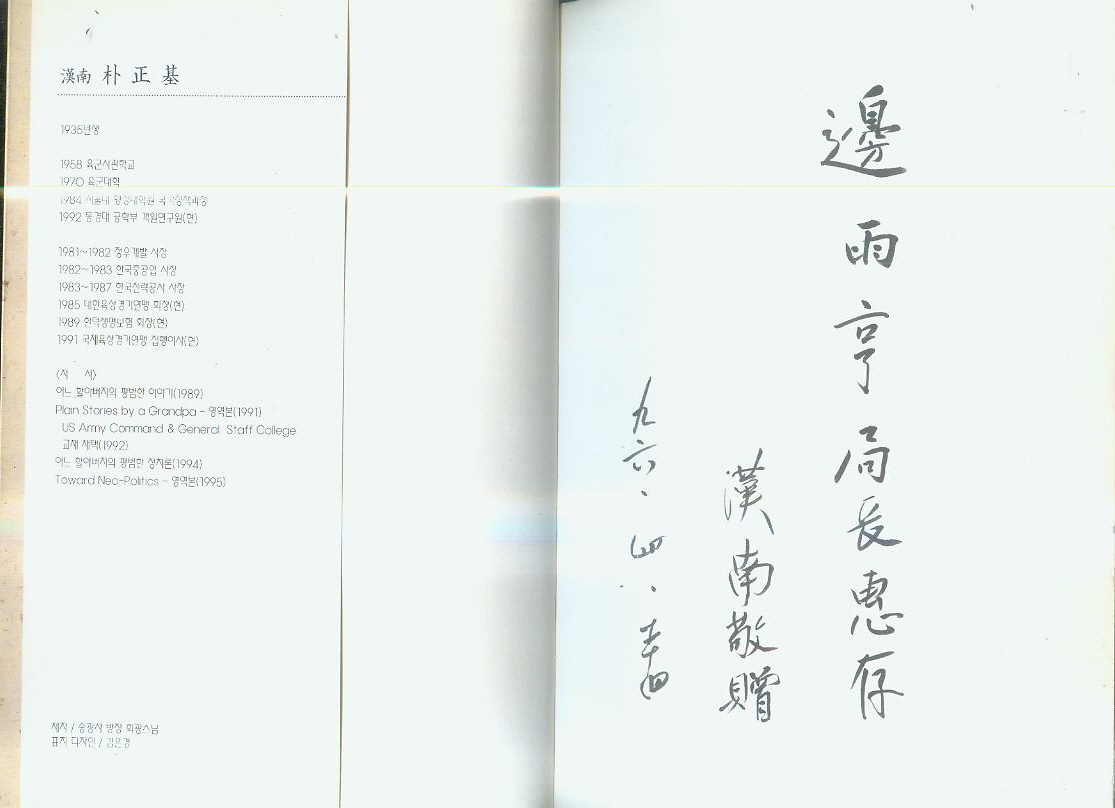 漢南 朴正基
1935년생
1958 육군사관학교
1970 육군대학
1984 서울대 행정대학원 국가정책과정
1992 동경대 공학부 객원연구원(현)
1981~1982 정우개발 사장
1982~1983 한국중공업 사장
1983~1987 한국전력공사 사장
1985 대한육상경기연맹 회장(현)
1989 한덕생명보험 회장(현)
1991 국제육상경기연맹 집행이사(현)
〈저 서〉
어느 할아버지의 평범한 이야기(1989)
Plain Stories by a Grandpa - 영역본(1991)
US Army Command & General Staff College
교재 채택(1992)
어느 할아버지의 평범한 정치론(1994)
Toward Neo-Politics - 영역본(1995)
제자 / 송광사 방장 회광스님
표지 디자인 / 김은경
邊雨亨局長惠存
漢南敬贈
九六、四、